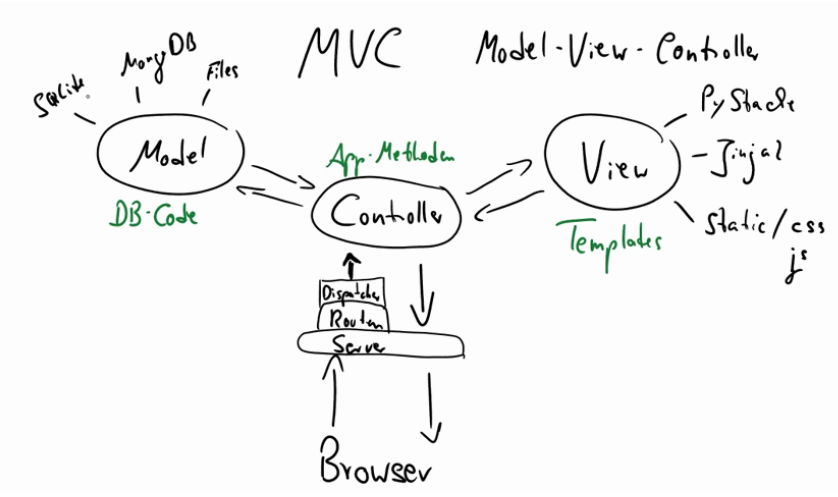 MVC
Model-View-Controller
SQLite
MongoDB
Files
Model
DB-Code
App-Methoden
Controller
View
Templates
PyStache
Jinja2
Static/css
js
Dispatcher
Routen
Server
Browser